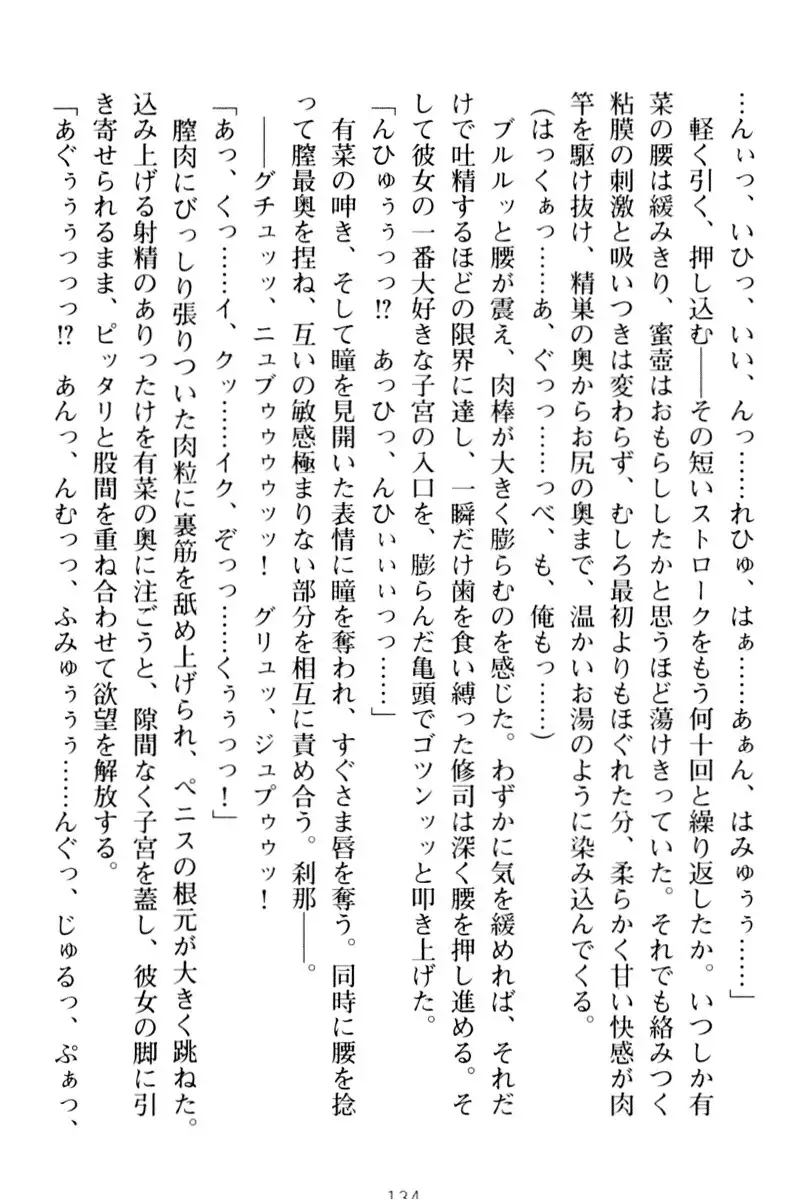 …んぃっ、いひっ、いい、んっ……れひゅ、はぁ……あぁん、はみゅぅぅ……」
　軽く引く、押し込む――その短いストロークをもう何十回と繰り返したか。いつしか有
菜の腰は緩みきり、蜜壺はおもらししたかと思うほど蕩けきっていた。それでも絡みつく
粘膜の刺激と吸いつきは変わらず、むしろ最初よりもほぐれた分、柔らかく甘い快感が肉
竿を駆け抜け、精巣の奥からお尻の奥まで、温かいお湯のように染み込んでくる。
（はっくぁっ……あ、ぐっっ……っべ、も、俺もっ……）
　ブルルッと腰が震え、肉棒が大きく膨らむのを感じた。わずかに気を緩めれば、それだ
けで吐精するほどの限界に達し、一瞬だけ歯を食い縛った修司は深く腰を押し進める。そ
して彼女の一番大好きな子宮の入口を、膨らんだ亀頭でゴツンッッと叩き上げた。
「んひゅぅぅっっ!?　あっひっ、んひぃぃぃっっ……」
　有菜の呻き、そして瞳を見開いた表情に瞳を奪われ、すぐさま唇を奪う。同時に腰を捻
って膣最奥を捏ね、互いの敏感極まりない部分を相互に責め合う。刹那――。
　――グチュッッ、ニュブゥゥゥゥッッ！　グリュッ、ジュプゥゥッ！
「あっ、くっ……イ、クッ……イク、ぞっっ……くぅぅっっ！」
　膣肉にびっしり張りついた肉粒に裏筋を舐め上げられ、ペニスの根元が大きく跳ねた。
込み上げる射精のありったけを有菜の奥に注ごうと、隙間なく子宮を蓋し、彼女の脚に引
き寄せられるまま、ピッタリと股間を重ね合わせて欲望を解放する。
「あぐぅぅぅっっっ!?　あんっ、んむっっ、ふみゅぅぅぅ……んぐっ、じゅるっ、ぷぁっ、
134